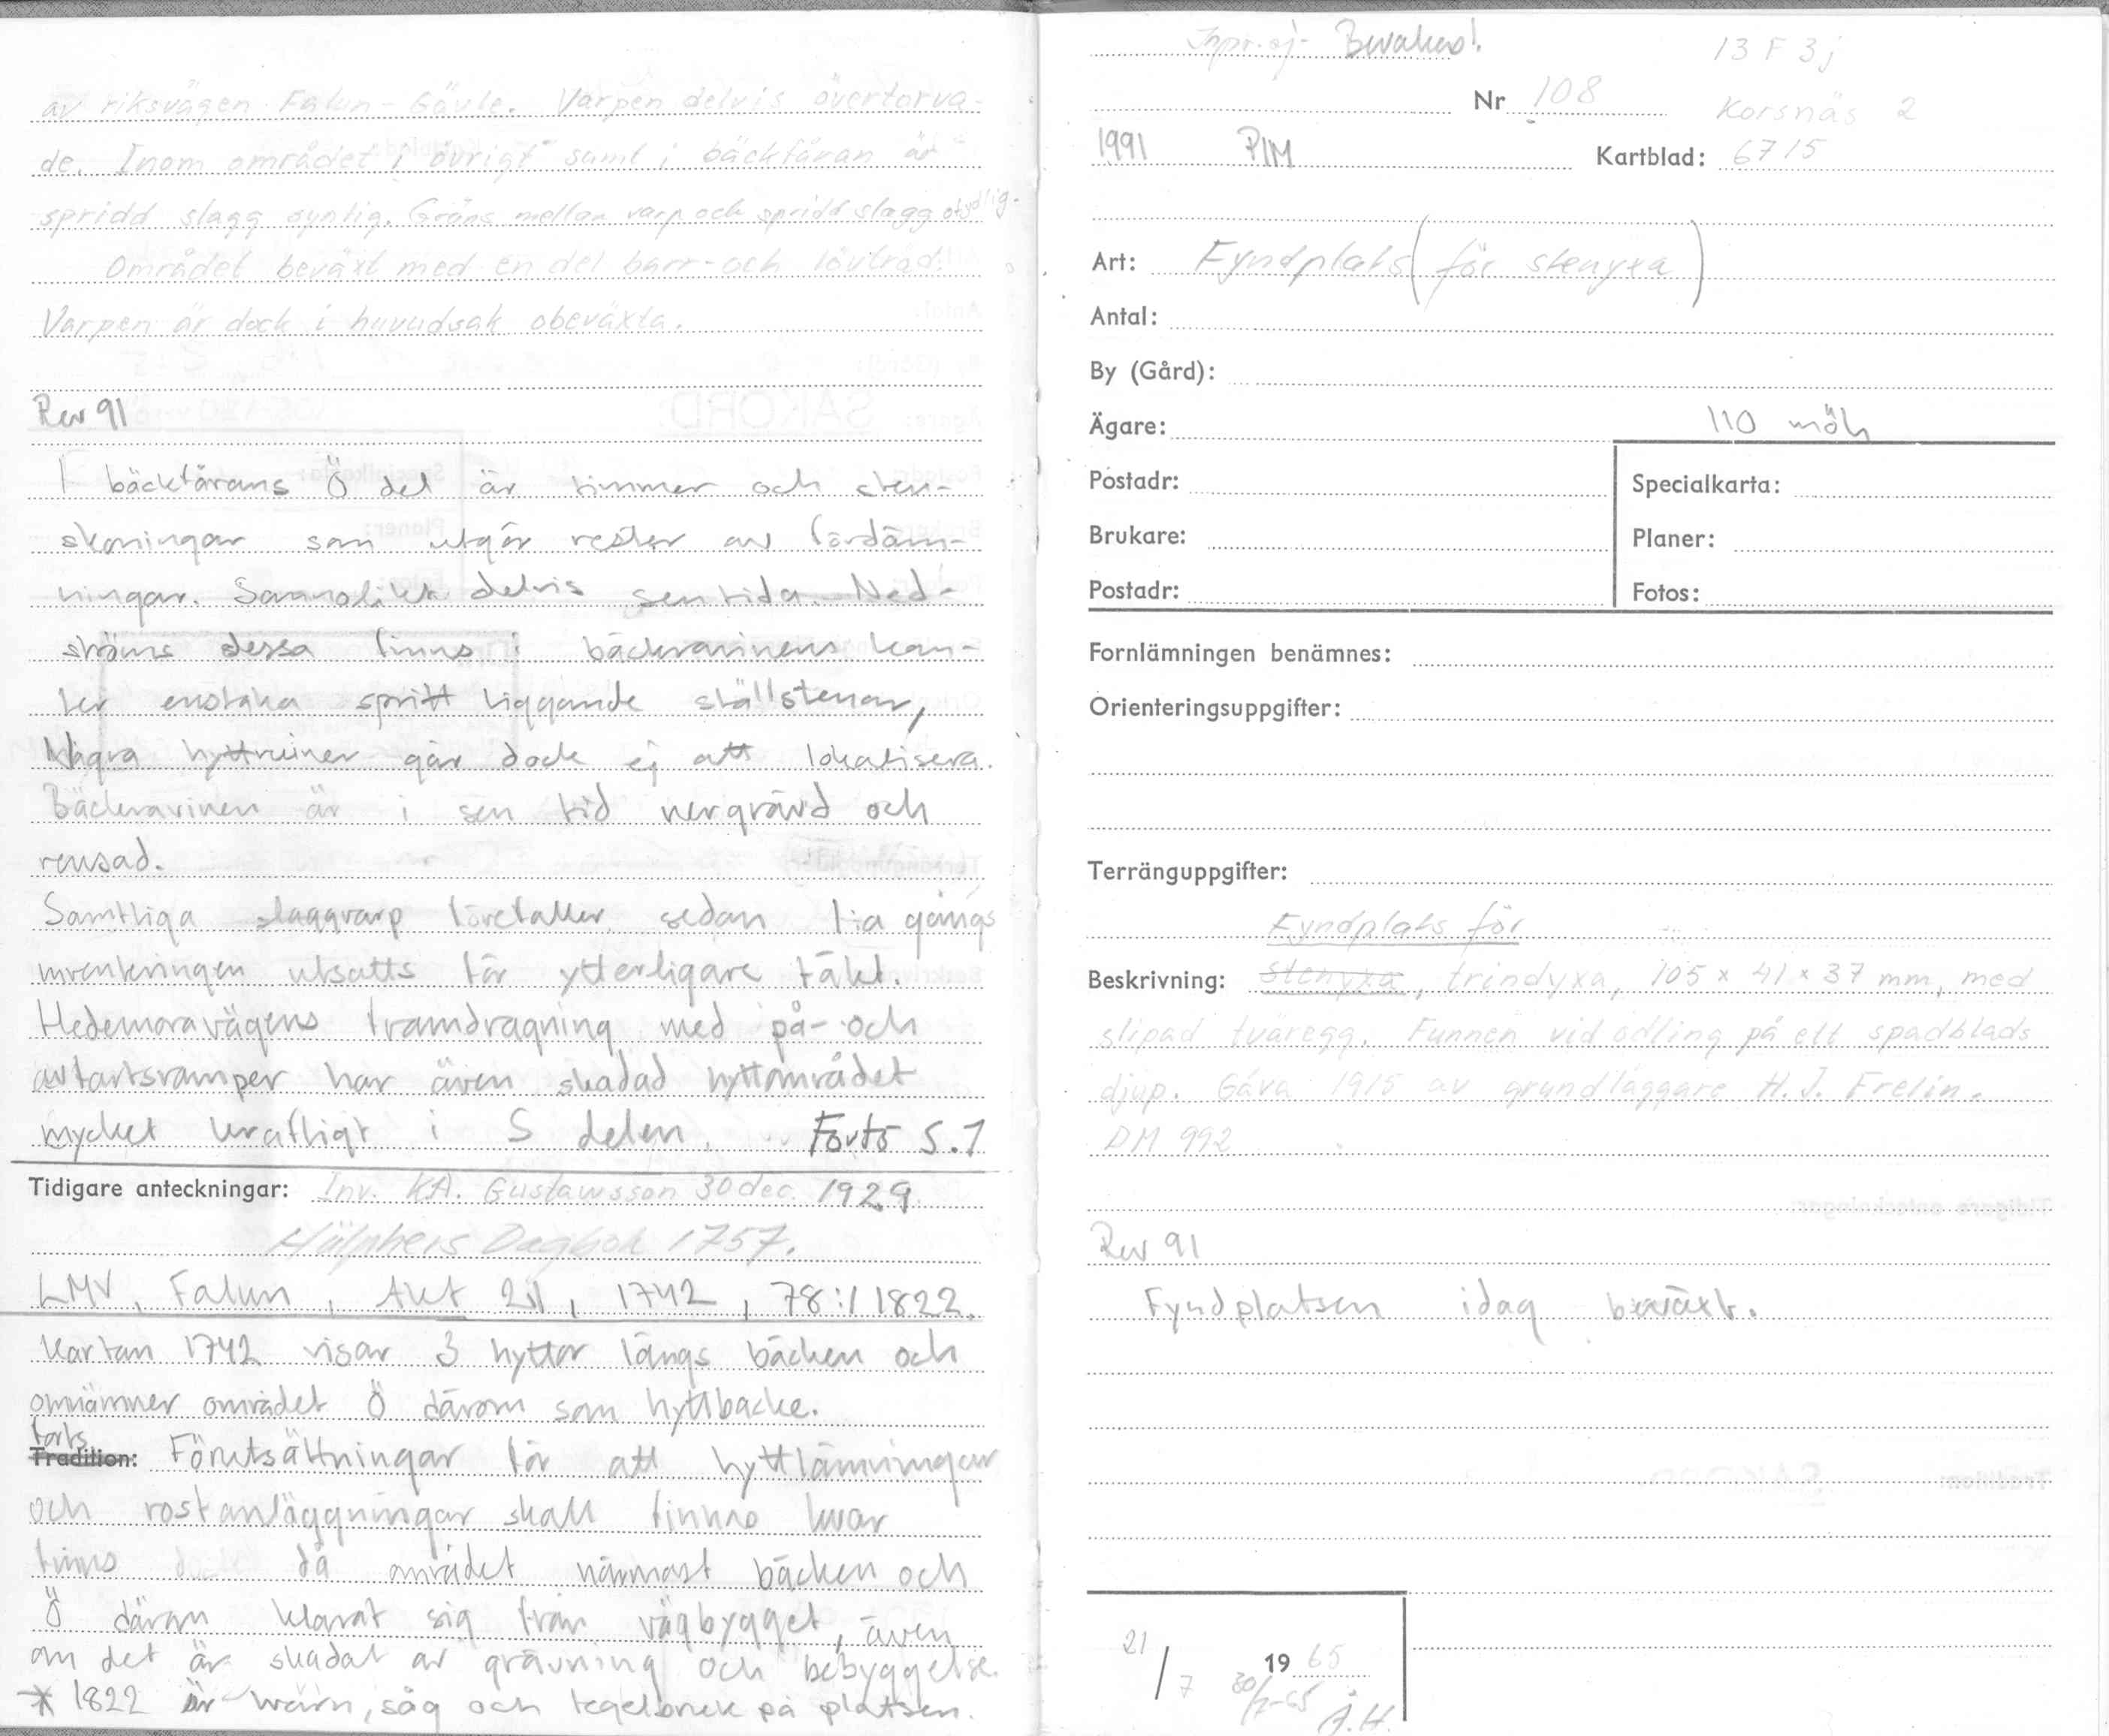 av riksvägen Falun-Gävle. Varpen delvis övertorva-
de. Inom området i övrigt samt i bäckfåran är
spridd slagg synlig. Gräns mellan varp och spridd slagg otydlig.
Området beväxt med en del barr- och lövträd.
Varpen är dock i huvudsak obeväxta.
Rev 91
I bäckfårans Ö del är timmer och sten-
skoningar som utgör rester av fördäm-
ningar. Sannolikt delvis sentida. Ned-
ströms dessa finns i bäckravinens kan-
ter enstaka spritt liggande ställstenar,
Några hyttruiner går dock ej att lokalisera.
Bäckravinen är i sen tid nergrävd och
rensad.
Samtliga slaggvarp förefaller sedan 1:a gångs
inventeringen utsatts för ytterligare täkt.
Hedemoravägens framdragning med på- och
avfartsramper har även skadad hyttområdet
mycket kraftligt i S delen. Forts S.1
Tidigare anteckningar: Inv. KA. Gustawsson 30 dec. 1929.
Hülphers Dagbok 1757.
LMV, Falun, Akt 21, 1742, 78:1 1822.
Kartan 1742 visar 3 hyttor längs bäcken och
omnämner området Ö därom som hyttbacke.
forts
Tradition: Förutsättningar för att hyttlämningar
och rostanläggningar skall finnas kvar
finns då området närmast bäcken och
Ö därom klarat sig från vägbygget, även
om det är skadat av grävning och bebyggelse.
* 1822 är kvarn, såg och tegelbruk på platsen.
ej Bevakas!
13 F 3j
Nr 108
Korsnäs 2
1991 PIM
Kartblad: 6715
Art: Fyndplats (för stenyxa)
Antal:
By (Gård):
Ägare:
110 möh
Postadr:
Specialkarta:
Brukare:
Planer:
Postadr:
Fotos:
Fornlämningen benämnes:
Orienteringsuppgifter:
Terränguppgifter:
Fyndplats för
Beskrivning: stenyxa, trindyxa, 105 x 41 x 37 mm, med
slipad tväregg. Funnen vid odling på ett spadblads
djup. Gåva 1915 av grundläggare H. J. Frelin.
DM 992
Rev 91
Fyndplatsen idag beväxt.
21/7 1965
30/7-65 J.H.